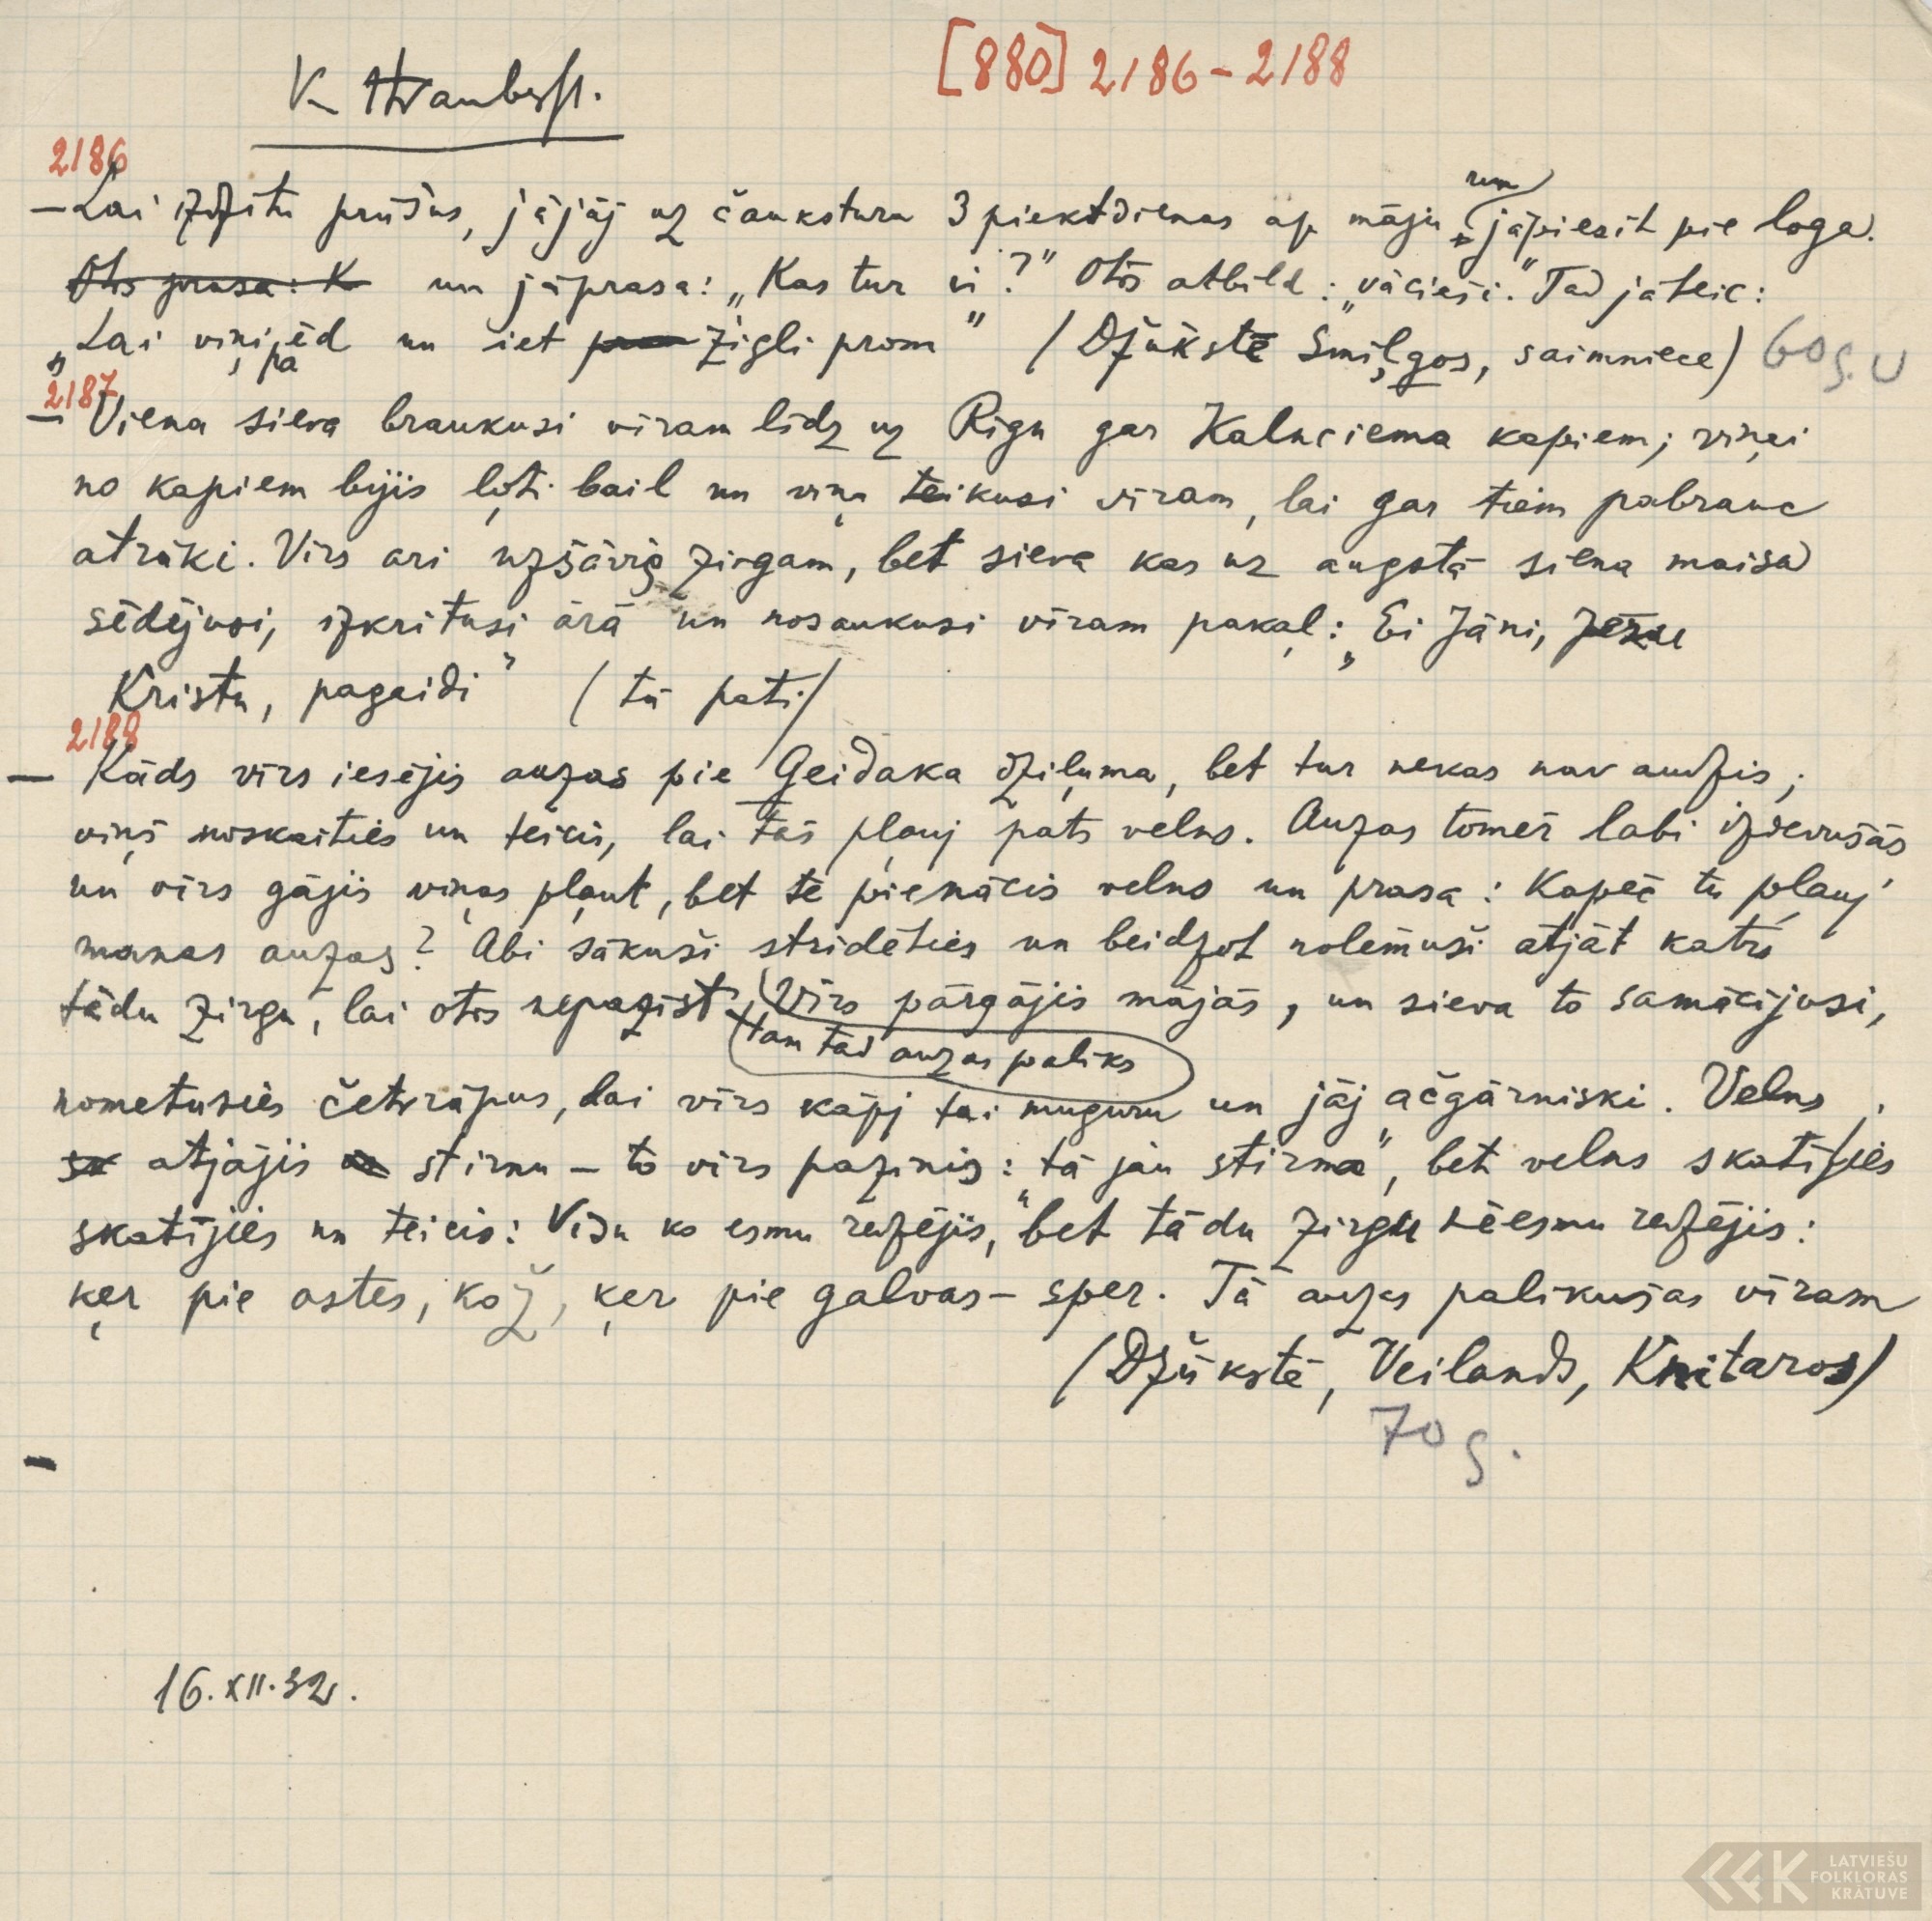 [880] 2186 - 2188
K Straubergs.
2186
— Lai izdzītu prūšus, jājāj uz čaukstura 3 piektdienas ap māju un jāpiesit pie loga.
Otrs prasa: K un jāprasa: „Kas tur ir?" Otrs atbild: „vācieši." Tad jāteic:
„Lai viņi paēd un iet žigli prom" (Džūkstē Smilgos, saimniece) 60 g. v
2187
— Viena sieva braukusi vīram līdz uz Rīgu gar Kalnciema kapiem; viņai
no kapiem bijis ļoti bail un viņa teikusi vīram, lai gar tiem pabrauc
ātrāki. Vīrs arī uzšāvis zirgam, bet sieva kas uz augstā siena maisa
sēdējusi, izkritusi ārā un nosaukusi vīram pakaļ: „Ei Jāni, Jēzu
Kristu, pagaidi" (tā pati)
2188
— Kāds vīrs iesējis auzas pie Geidaka dziļuma, bet tur nekas nav audzis;
viņš noskaities un teicis, lai tās pļauj pats velns. Auzas tomēr labi izdevušās
un vīrs gājis viņas pļaut, bet te pienācis velns un prasa: Kapēc tu pļauj
manas auzas? Abi sākuši strīdēties un beidzot nolēmuši atjāt katrs
tādu zirgu, lai otrs nepazīst, Vīrs pārgājis mājās, un sieva to samācījusi,
tam tad auzas paliks
nometusies četrrāpus, lai vīrs kāpj tai mugurā un jāj ačgārniski. Velns
atjājis stirnu — to vīrs pazinis: „tā jau stirna", bet velns skatījies
skatījies un teicis: Visu ko esmu redzējis, bet tādu zirgu neesmu redzējis:
ķer pie astes, kož, ķer pie galvas — sper. Tā auzas palikušas vīram
(Džūkstē, Veilands, Knitaros)
70 g.
16. XII. 32.
LATVIEŠU
FOLKLORAS
KRĀTUVE